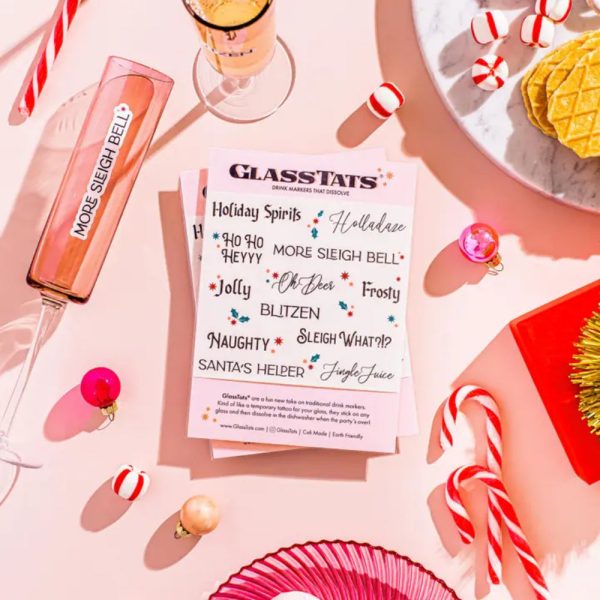 MORE SLEIGH BELL
GLASSTATS
DRINK MARKERS THAT DISSOLVE
Holiday Spirits
Holladaze
Ho Ho
Heyyy
MORE SLEIGH BELL
Jolly
Oh Deer
Frosty
BLITZEN
Naughty
Sleigh What?!?
SANTA'S HELPER
Jingle Juice
GlassTats® are a fun new take on traditional drink markers.
Kind of like a temporary tattoo for your glass, they stick on any
glass and then dissolve in the dishwasher when the party's over!
www.GlassTats.com | @GlassTats | Cali Made | Earth Friendly